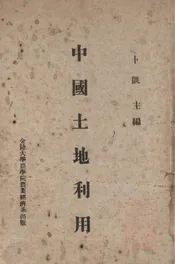 卜凱主編
中國土地利用
金陵大學農學院農業經濟系出版